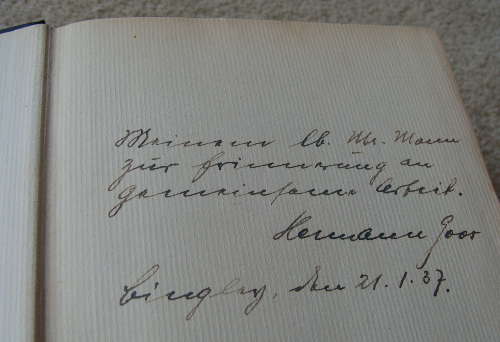 Meinem lb. Mr. Mann
zur Erinnerung an
gemeinsame Arbeit.
Hermann Goos
Bingley, den 21.1.37.